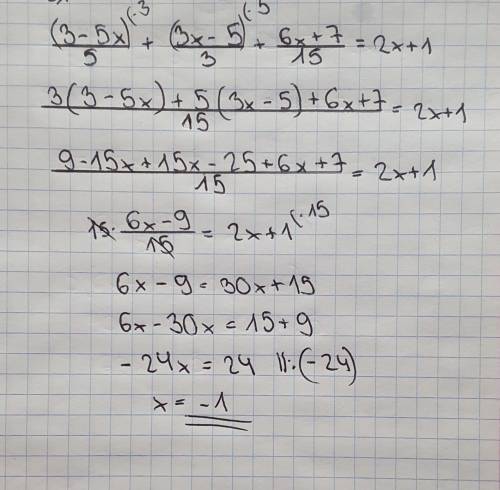 (3-5x)/5 (·3 + (3x-5)/3 (·5 + (6x+7)/15 = 2x+1
(3(3-5x)+5(3x-5)+6x+7)/15 = 2x+1
(9-15x+15x-25+6x+7)/15 = 2x+1
15· (6x-9)/15 = 2x+1 (·15
6x-9 = 30x+15
6x-30x = 15+9
-24x = 24 ||:(-24)
x = -1